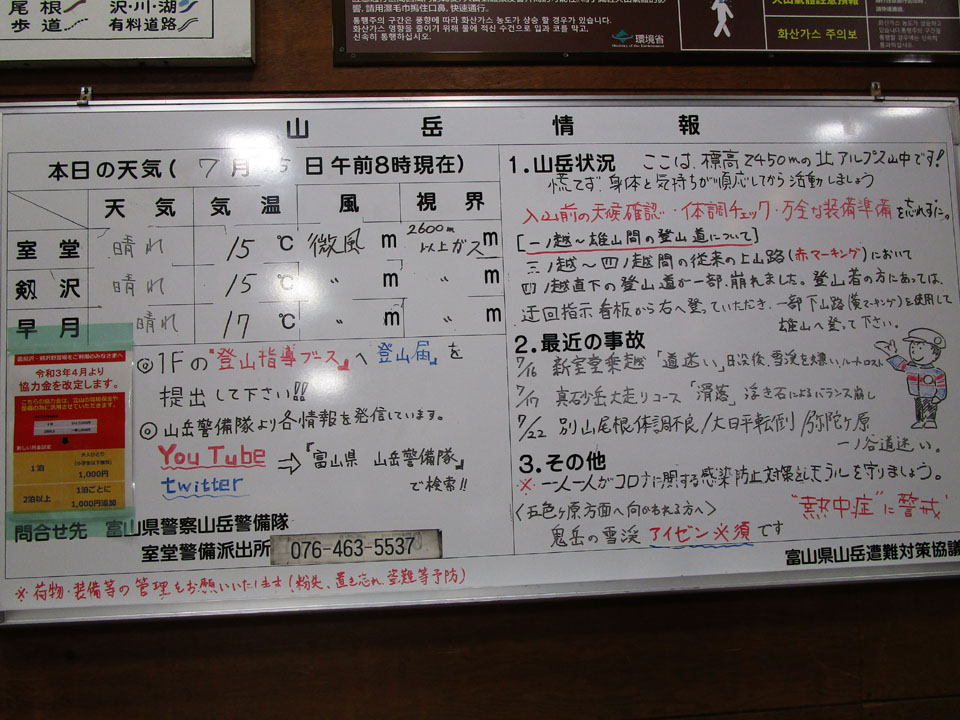 尾根
歩道
沢・川・湖
有料道路
통행주의 구간은 풍향에 따라 화산가스 농도가 상승 할 경우가 있습니다.
화산가스 영향을 줄이기 위해 물에 적신 수건으로 입과 코를 막고,
신속히 통행하십시오.
環境省
화산가스 주의보
山岳情報
本日の天気(7月 5日午前8時現在)
天気 気温 風 視界
室堂 晴れ 15℃ 微風 m 2600m以上ガス m
剱沢 晴れ 15℃ 〃 m 〃 m
早月 晴れ 17℃ 〃 m 〃 m
令和3年4月より
協力金を改定します。
1泊 1,000円
2泊以上 1泊ごとに
1,000円追加
◎1Fの"登山指導ブース"へ登山届を
提出して下さい!!
◎山岳警備隊より各情報を発信しています。
You Tube ⇒『富山県 山岳警備隊』
twitter で検索!!
問合せ先 富山県警察山岳警備隊
室堂警備派出所 076-463-5537
※荷物・装備等の管理をお願いいたします(紛失、置き忘れ、盗難等予防)
1.山岳状況 ここは、標高2450mの北アルプス山中です!
慌てず、身体と気持ちが順応してから活動しましょう
入山前の天候確認・体調チェック・万全な装備準備を忘れずに。
[一ノ越~雄山間の登山道について]
三ノ越~四ノ越間の従来の上山路(赤マーキング)において
四ノ越直下の登山道が一部、崩れました。登山者の方にあっては、
迂回指示看板から右へ登っていただき、一部下山路(黄マーキング)を使用して
雄山へ登って下さい。
2.最近の事故
7/16 新室堂乗越「道迷い」日没後、雪渓を嫌いルートロスト
7/17 真砂岳大走りコース「滑落」浮き石によるバランス崩し
7/22 別山尾根体調不良/大日平転倒/弥陀ヶ原
一ノ谷道迷い。
3.その他
※一人一人がコロナに関する感染防止対策とルールを守りましょう。
〈五色ヶ原方面へ向かわれる方へ〉 "熱中症"に警戒
鬼岳の雪渓 アイゼン必須です
富山県山岳遭難対策協議